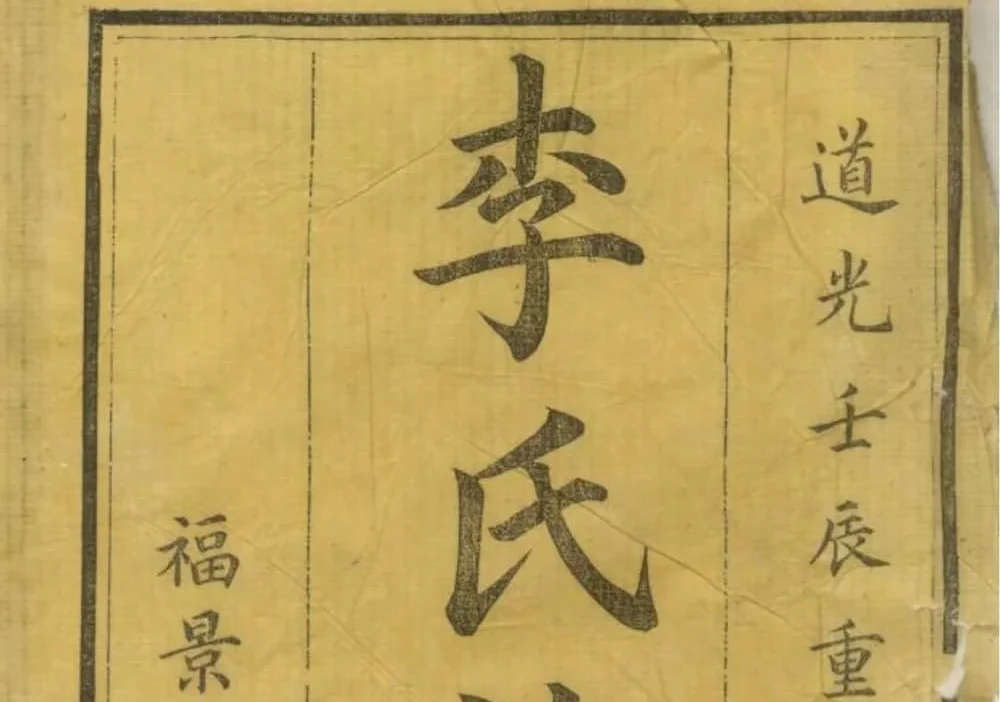 道光壬辰重
李氏
福景